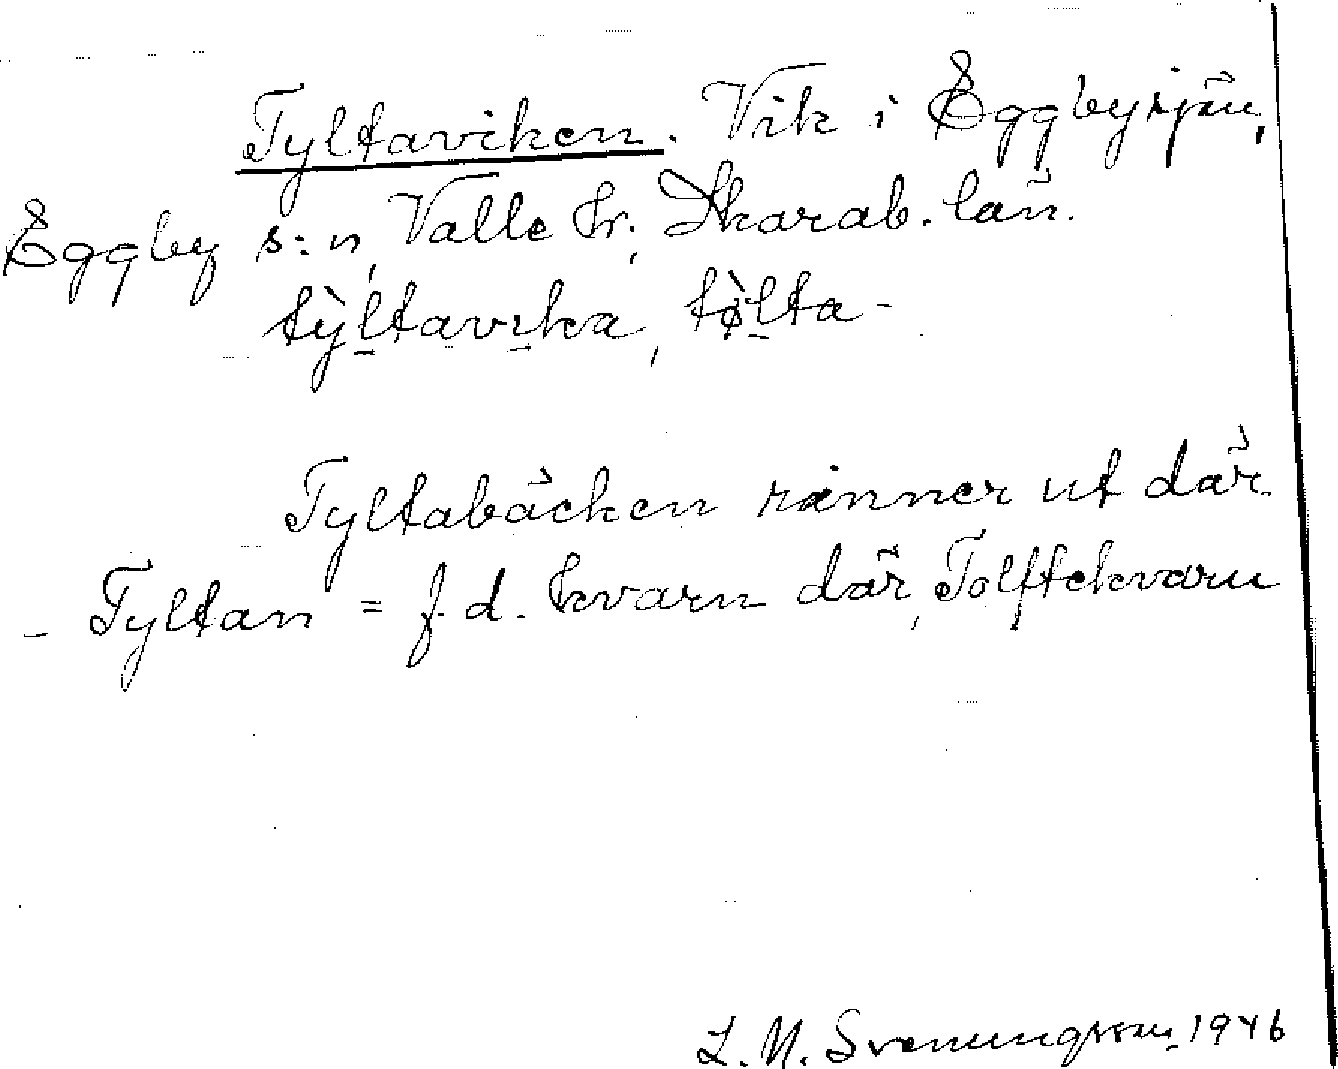 Tyltaviken. Vik i Eggbysjön,
Eggby s:n, Valle hr; Skarab. län.
tỳltavika, tø̀lta-
Tyltabäcken rinner ut där
- Tyltan = f.d. kvarn där, Tolftekvarn
L. M. Svenungsson 1946